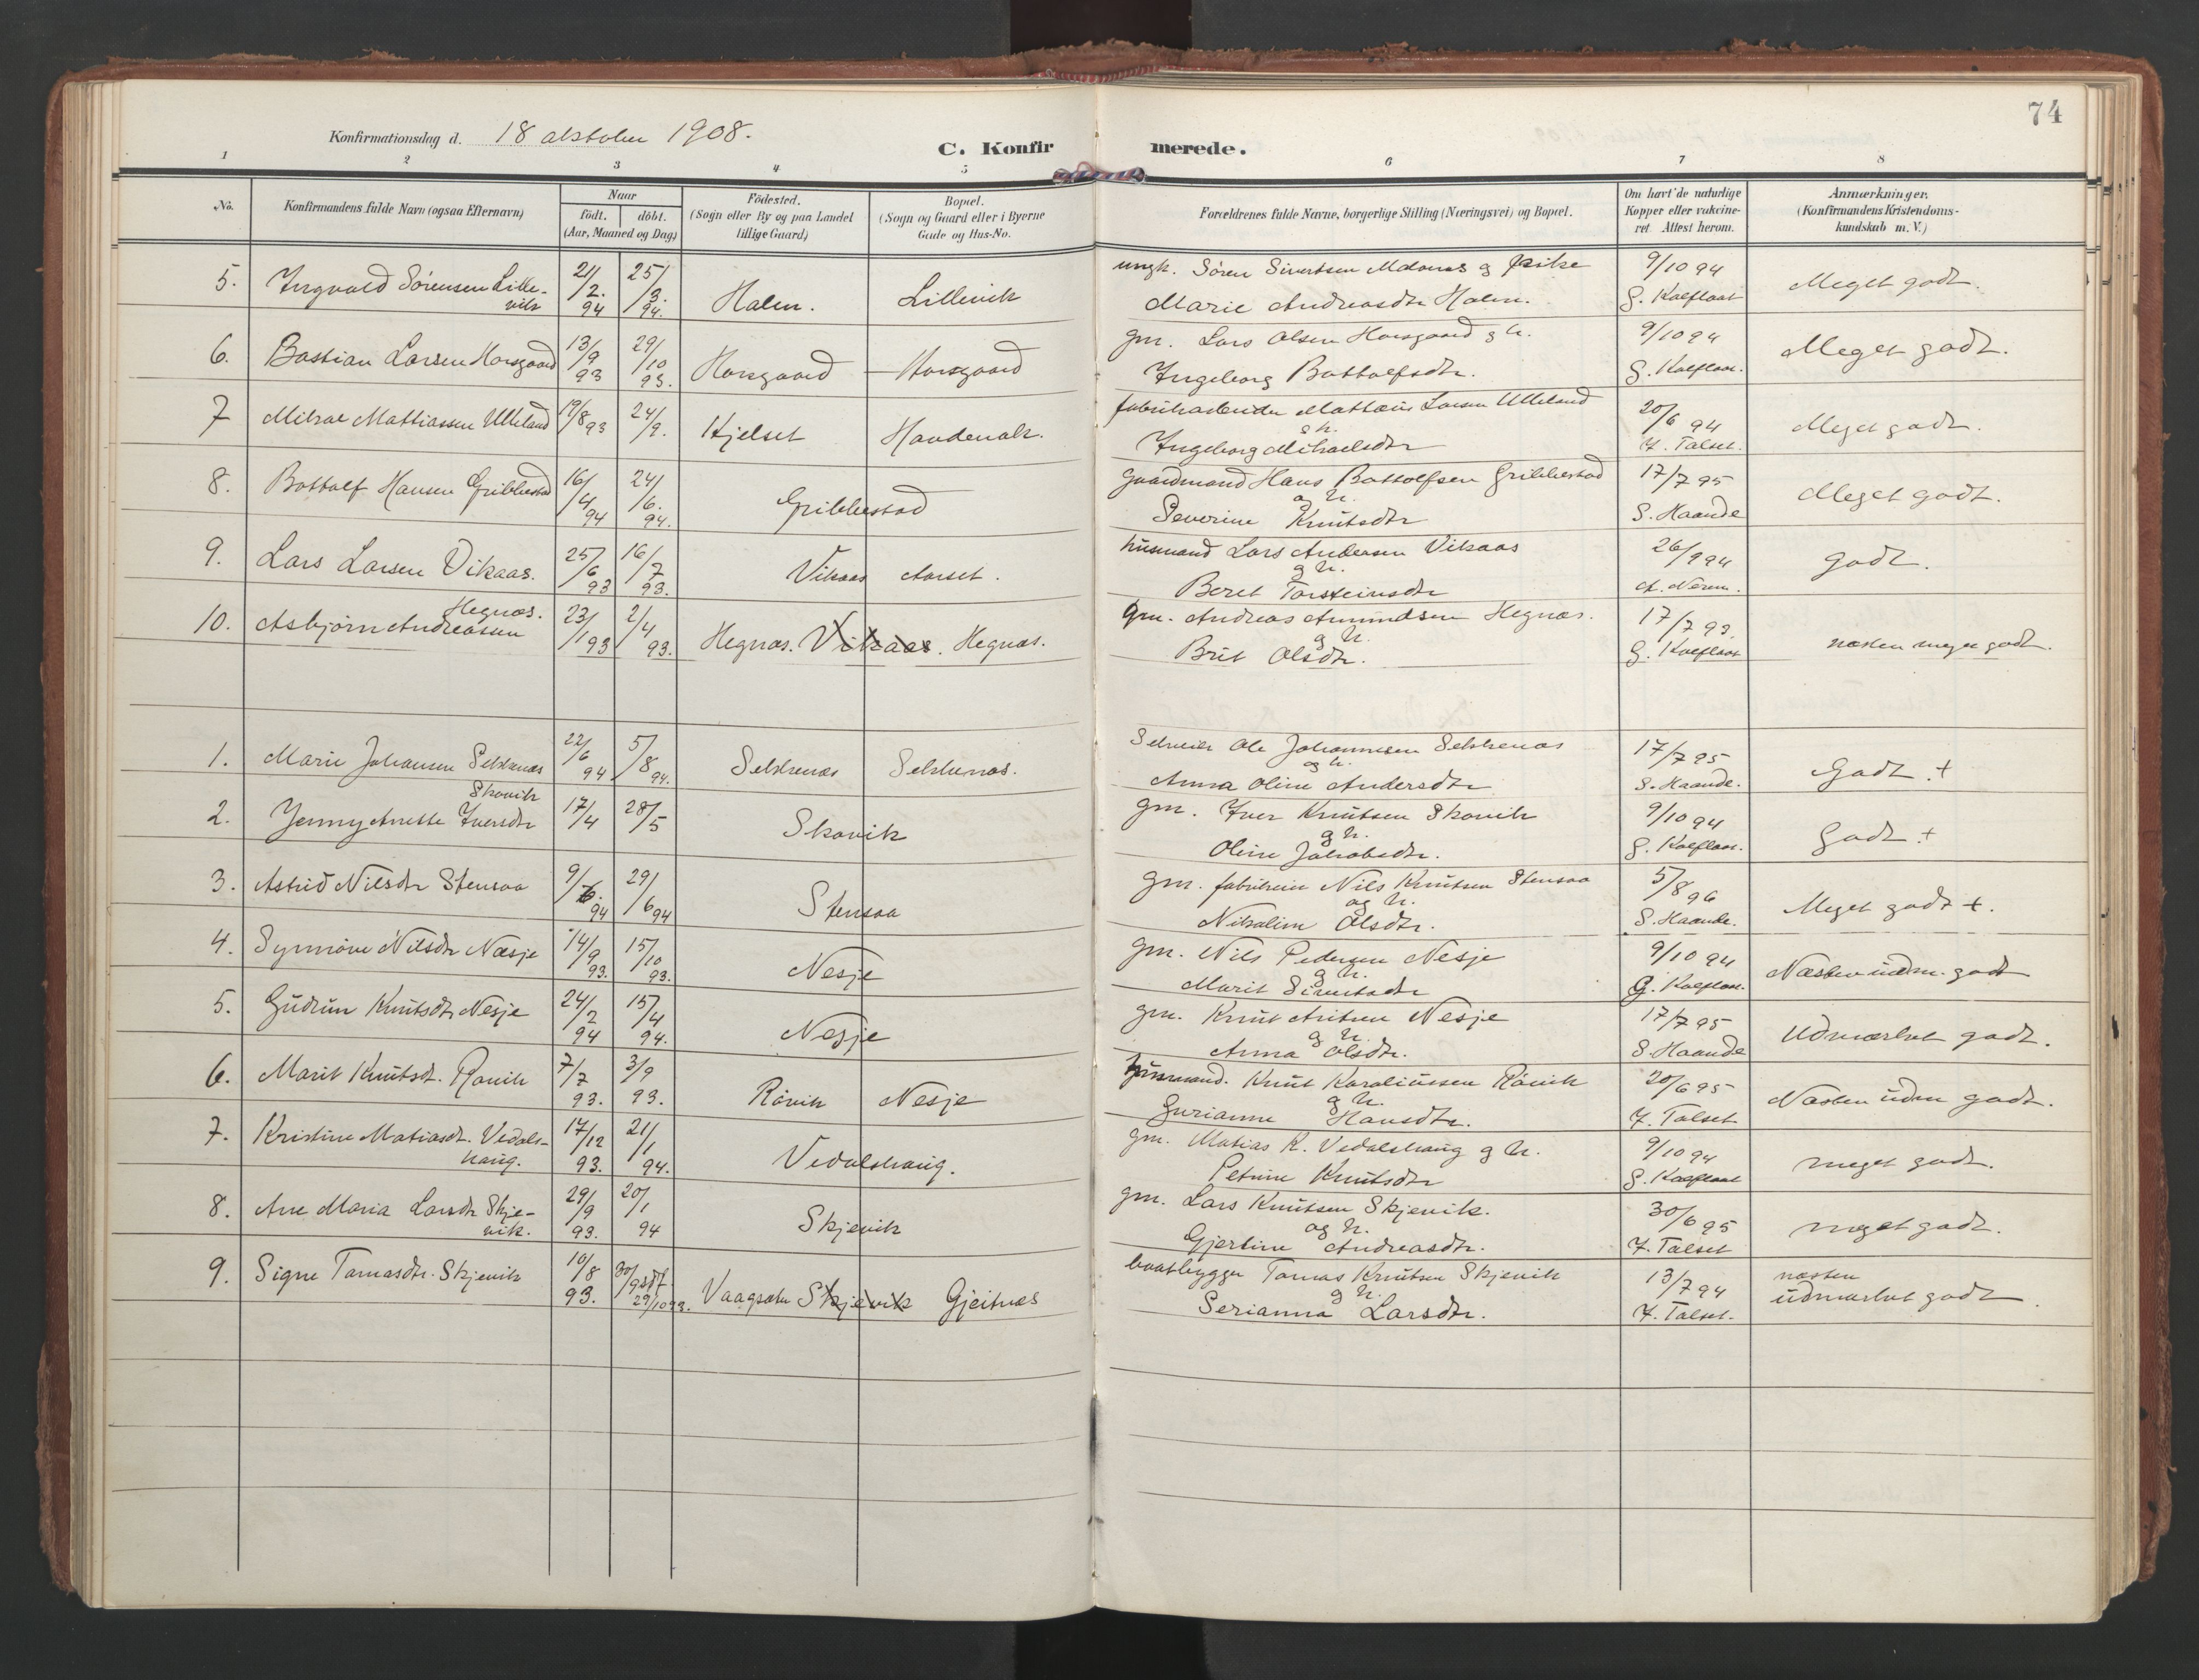 74
Konfirmationsdag d. 18 oktober 1908.
C. Konfirmerede.
1 2 3 4 5 6 7 8
No.
Konfirmandens fulde Navn (ogsaa Efternavn)
Naar
födt. döbt.
(Aar, Maaned og Dag)
Födested.
(Sogn eller By og paa Landet
tillige Gaard)
Bopæl.
(Sogn og Gaard eller i Byerne
Gade og Hus-No.
Forældrenes fulde Navne, borgerlige Stilling (Næringsvei) og Bopæl.
Om havt de naturlige
Kopper eller vakcine-
ret. Attest herom.
Anmærkninger.
(Konfirmandens Kristendoms-
kundskab m. V.)
5. Ingvald Sörensen Lille-
vik 21/2. 94 25/3. 94. Halen. Lillevik
ungk. Sören Sivertsen Malones g pike
Marie Andreasdtr Halen.
9/10 94
G. Kalflaat
Meget godt.
6. Bastian Larsen Horsgaard 13/9 93 29/10 93. Horsgaard Horsgaard
gm. Lars Olsen Horsgaard g h.
Ingeborg Bottolfsdtr.
9/10 94
G. Kalflaat.
Meget godt.
7 Mikal Mattiassen Ulleland 19/8 93 24/9. Hjelset
fabrikarbeider Mattæus Larsen Ulleland
g h.
Ingeborg Mikaelsdtr
20/6 94
I. Talset.
Meget godt.
8. Bottolf Hansen Gribbestad 16/4 94 24/6. 94. Gribbestad
Gaardmand Hans Bottolfsen Gribbestad
og h.
Severine Knutsdtr
17/7 95
S. Haande
Meget godt.
9. Lars Larsen Vikaas. 25/6 93 16/7 93. Vikaas Aarset.
husmand Lars Andersen Vikaas
g h.
Beret Torsteinsdtr
26/9 94
godt.
10. Asbjörn Andreassen Hegnæs. 23/1 93 2/4 93. Hegnæs. Vikaas. Hegnæs.
gm. Andreas Amundsen Hegnæs.
g h.
Brit Olsdtr.
17/7 93.
G. Kalflaat
næsten meget godt.
1. Marie Johansen Selsknæs 22/6 94 5/8 94. Selsknæs Selsknæs.
Ole Johannesen Selsknæs
og h.
Anna Oline Andersdtr
17/7 95
S. Haande.
Godt. +
2. Jenny Anette Iversdtr Skovik 17/4 28/5 Skovik
gm. Iver Knutsen Skovik
g h.
Oline Jakobsdtr.
9/10 94
G. Kalflaat.
Godt +
3. Astrid Nilsdtr Stensaa 9/6. 94 29/6 94 Stensaa
gm. fabrikeier Nils Knutsen Stensaa
og h.
Nikoline Olsdtr.
5/8 96
S. Haande.
Meget godt +.
4. Synnöve Nilsdtr Næsje 14/9 93. 15/10 93. Nesje
gm. Nils Pedersen Nesje
g h.
Marit Sivertsdtr
9/10 94
G. Kalflaat.
Næsten udm. godt
5. Gudrun Knutsdtr Nesje 24/2 94 15/4 94. Nesje
gm. Knut Nesje
g h.
Anna Olsdtr.
17/7 95
S. Haande
Udmærket godt.
6. Marit Knutsdt. Rövik 7/7 93. 3/9 93. Rövik Nesje
husmand. Knut Karoliussen Rövik
g h.
Gurianne Hansdtr.
20/6 95
I. Talset
Næsten udm godt.
7. Kristine Matiasdt. Vedals-
haug. 17/12 93. 21/1 94. Vedalshaug.
gm. Matias K. Vedalshaug g h.
Petrine Knutsdtr
9/10 94
G. Kalflaat
meget godt.
8. Ane Maria Larsdtr Skje-
vik. 29/9 93. 20/1 94 Skjevik
gm. Lars Knutsen Skjevik.
og h.
Gjertine Andreasdtr.
30/6 95
I. Talset
meget godt.
9. Signe Tomasdtr. Skjevik 10/8 93. 30/9 sdf. 29/10 93. Vaagsæter Skjevik Gjeitnæs
baatbygger Tomas Knutsen Skjevik
g h.
Serianna Larsdtr.
13/7 94
I. Talset.
næsten
udmærket godt.